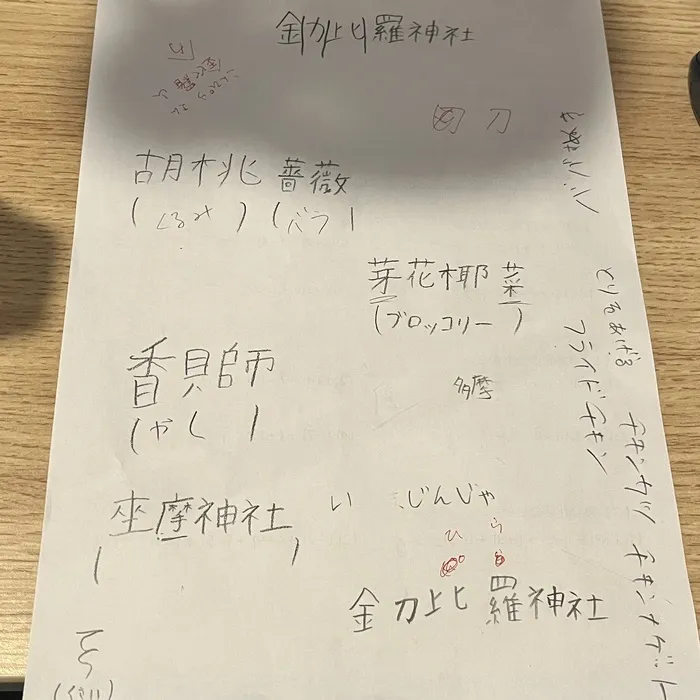 金刀比羅神社
四 刀
胡桃 薔薇
(くるみ) (バラ)
芽花椰菜
(ブロッコリー)
香具師
(やし)
多摩
坐摩神社
い じんじゃ
ひ ら
金刀比羅神社
とりをあげる
フライドチキン
チキンカツ
チキンナゲット